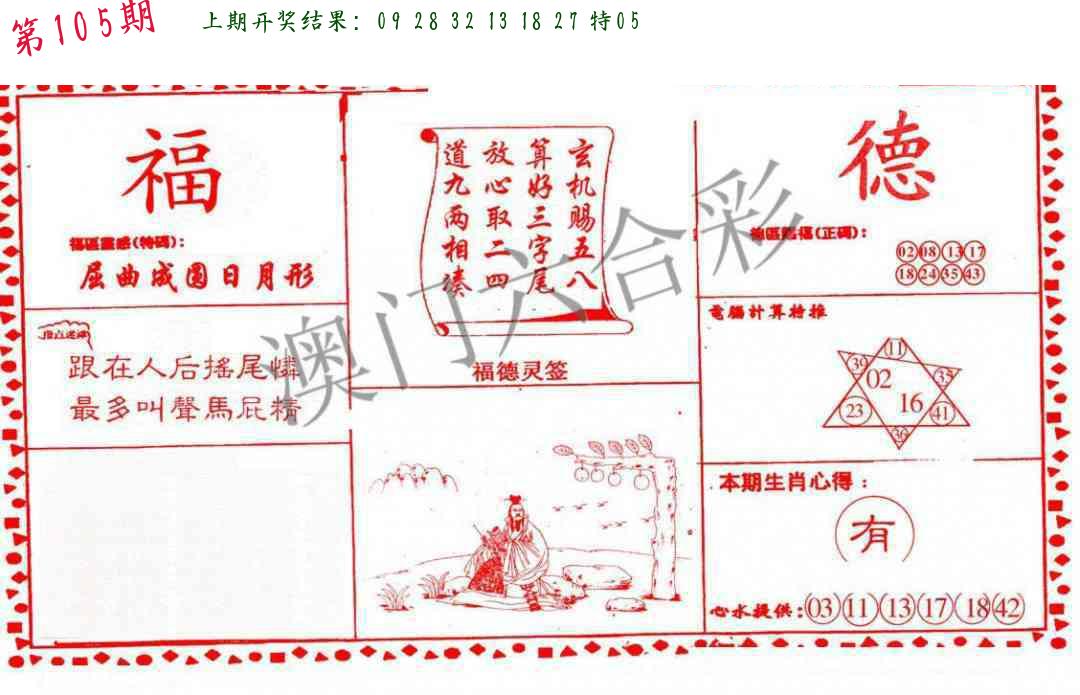 第105期
上期开奖结果：09 28 32 13 18 27 特05
福
福區靈感(特碼)：
屈曲成圆日月形
跟在人后摇尾憐
最多叫聲馬屁精
玄机赐五八
算好三字尾
放心取二四
道九两相凑
福德灵签
德
(正碼)：
02 08 13 17
18 24 35 43
電腦計算特推
11
39 02 35
23 16 41
36
本期生肖心得：
有
心水提供：03 11 13 17 18 42
澳门六合彩